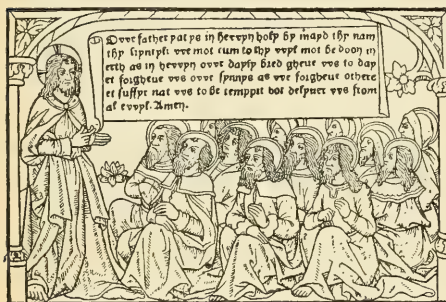 Ovvr father yat ys in hevvyn holy by mayd thy nam
thy vve mot cum to thy vvyl mot be doon in
erth as in hevvyn ovvr dayly bred gheve vvs to day
et forgheve vvs ovvr synnys as vve forgheve othere
et suffyr nat vvs to be temptyt bot delyver vvs from
al evvyl. Amen.